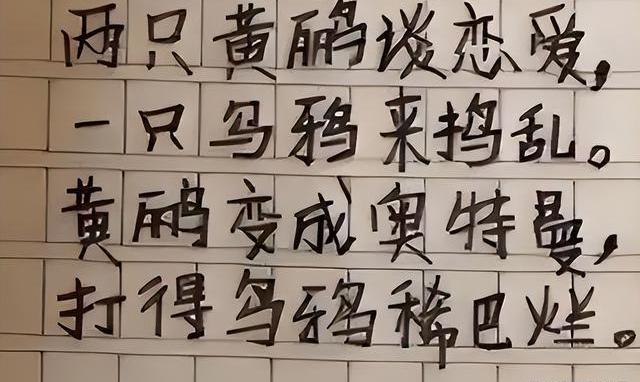 两只黄鹂谈恋爱,
一只乌鸦来捣乱。
黄鹂变成奥特曼,
打得乌鸦稀巴烂。